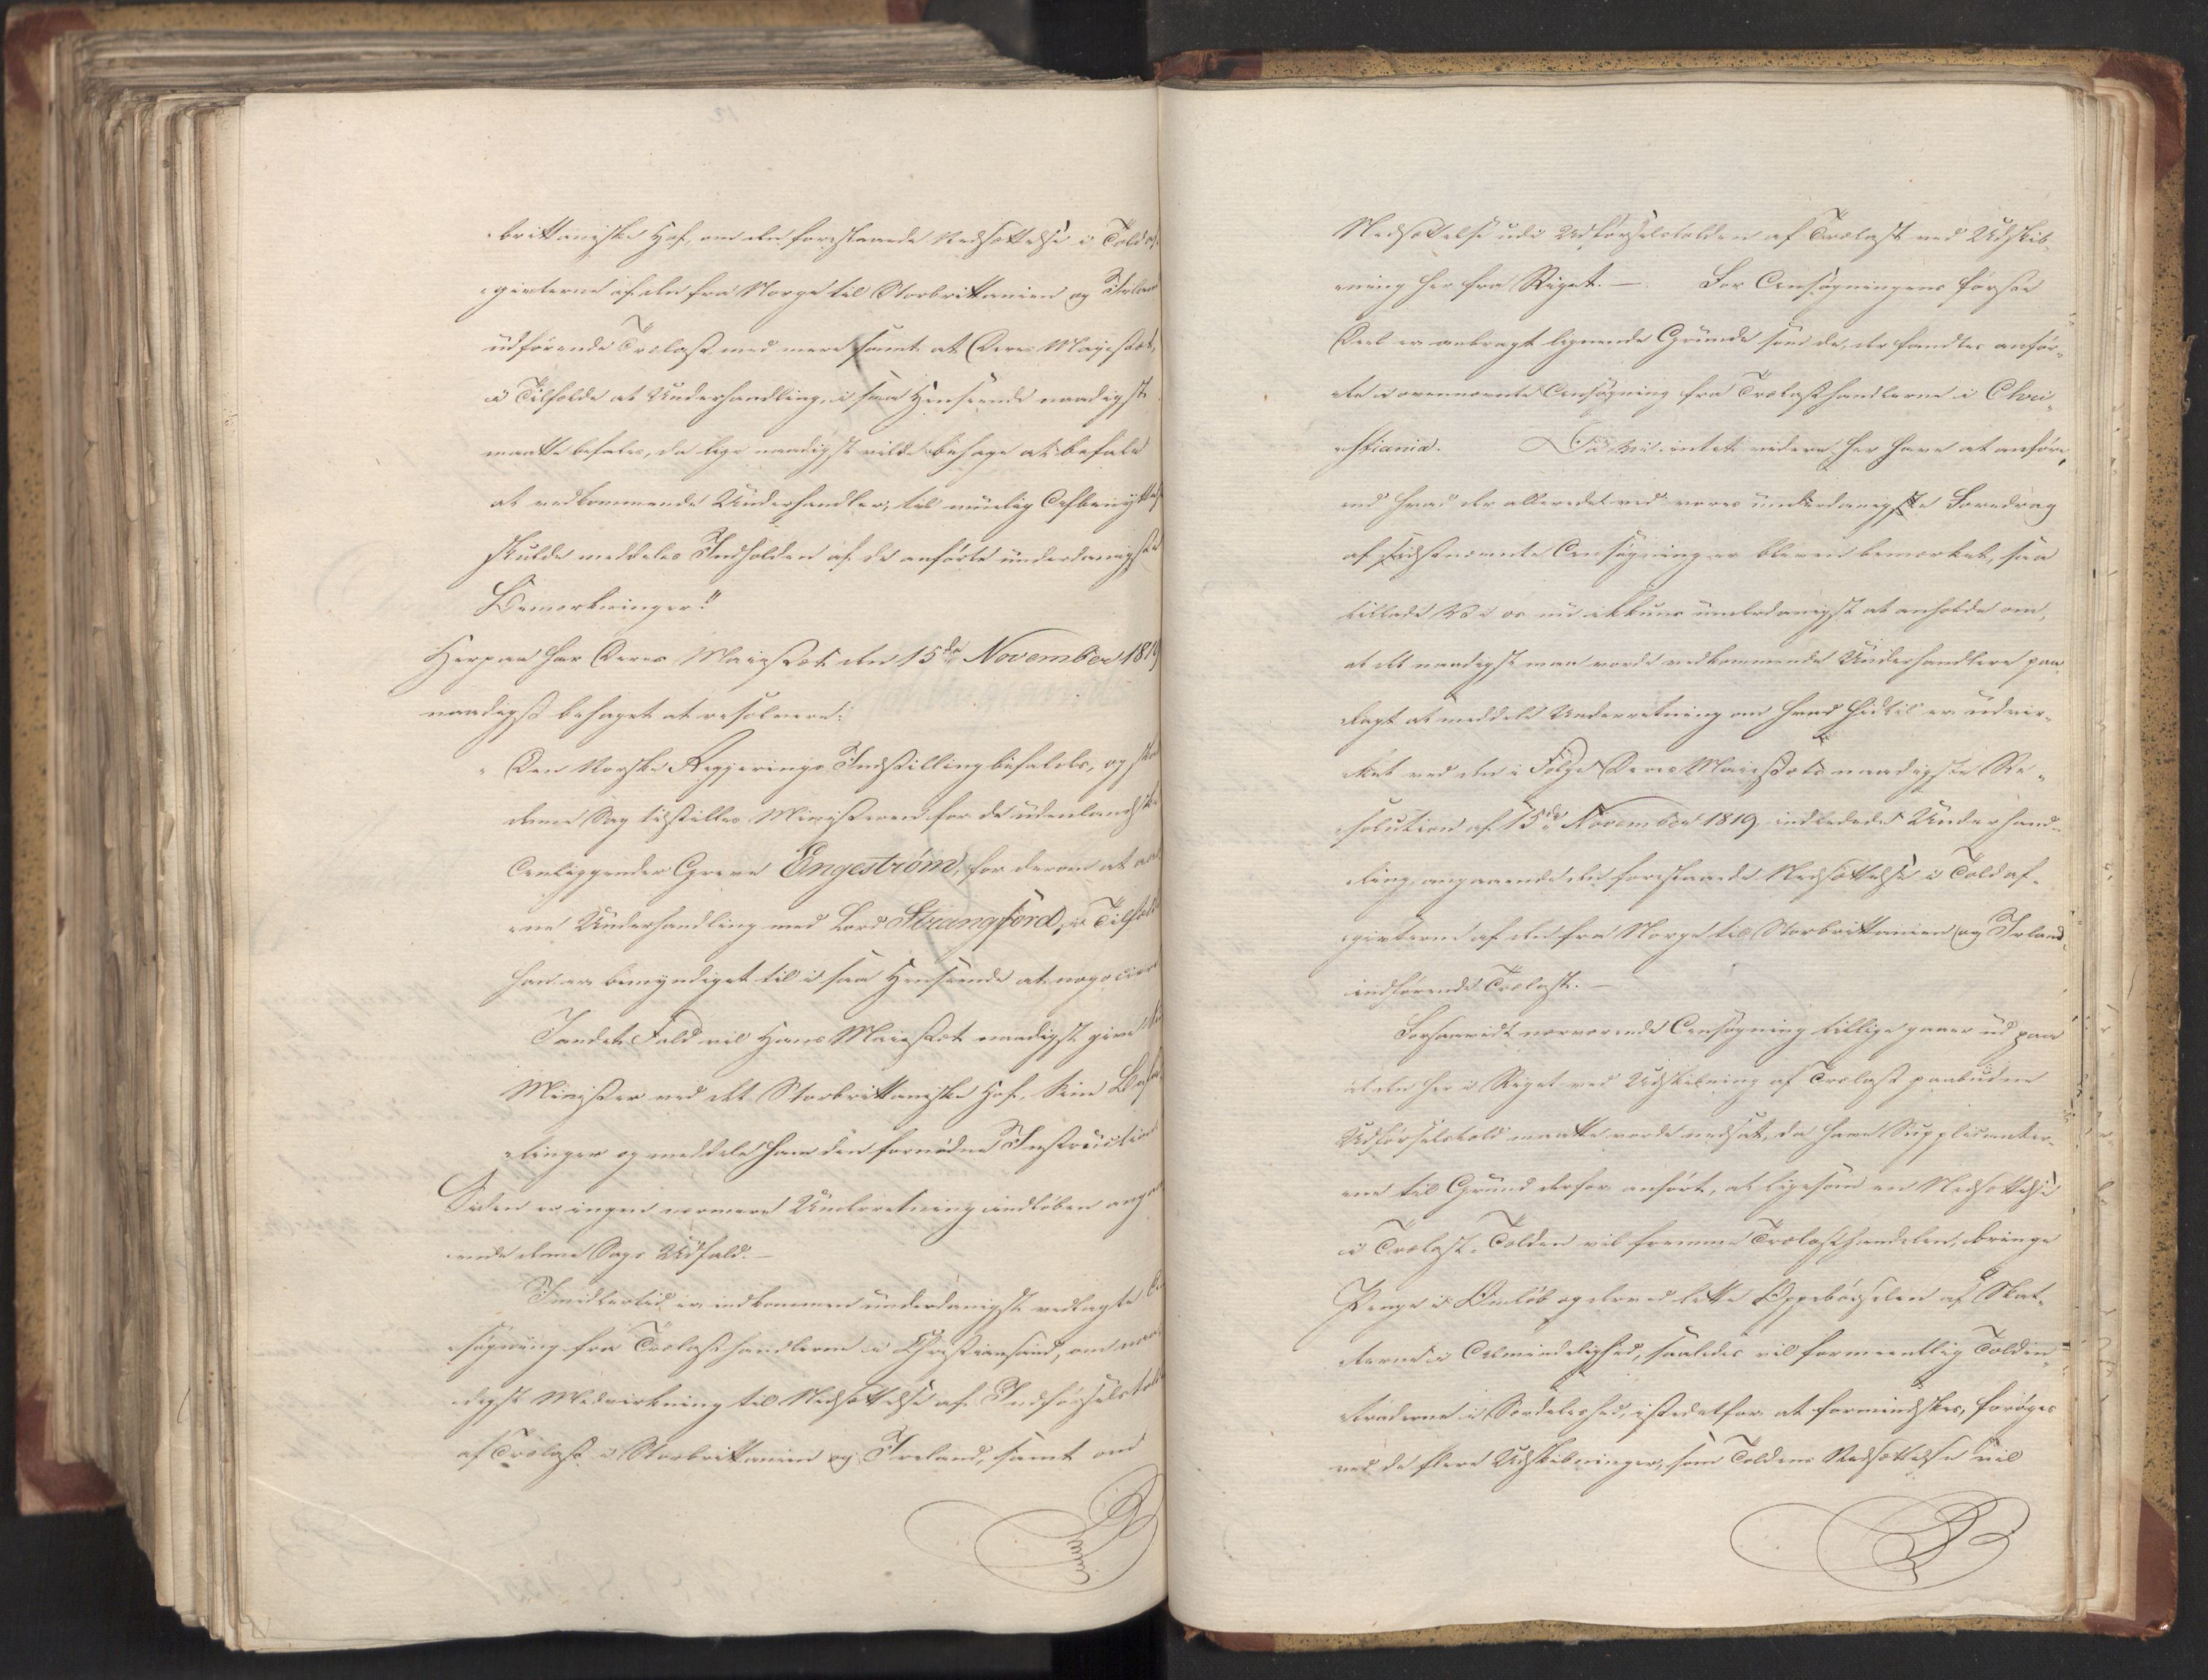 brittaniske Hof, om den forestaaende Nedsættelse i Toldaf-
givterne af den fra Norge til Storbrittanien og Irland
udførende Trælast med mere samt at Deres Majestæt,
i Tilfælde at Underhandling, i saa Henseende naadigst
maatte befales, da lige naadigst vilde behage at befale
at vedkommende Underhandler, til muelig Afbenyttelse
skulde meddeles Indholden af de anførte underdanigste
Bemærkninger."
Herpaa har Deres Majestæt den 15de November 1819
naadigst behaget at resolvere:
"Den Norske Regjerings Indstilling bifaldes, og skal
denne Sag tilstilles Ministeren for de udenlandske
Anliggender Greve Engeström, for derom at aab-
ne Underhandling med Lord Strangford, i Tilfælde
han er bemyndiget til i saa Henseende at negociere
I andet Fald vil Hans Majestæt naadigst give Sin
Minister ved det Storbrittaniske Hof, sine Befa-
linger og meddele ham den fornødne Instruction
Siden er ingen nærmere Underretning indløben angaa-
ende denne Sags Udfald.—
Imidlertid er indkommen underdanigst vedlagte An-
søgning fra Trælasthandlerne i Christiansand, om naa-
digst Medvirkning til Nedsættelse af Indførselstolden
af Trælast i Storbrittanien og Ireland, samt om
Nedsættelse udi Udførselstolden af Trælast ved Udskib-
ning her fra Riget.— For Ansøgningens første
Deel er anbragt lignende Grunde som de, der fandtes anfør-
te i ovennævnte Ansøgning fra Trælasthandlerne i Chri-
stiania. Da Vi intet videre her have at anføre,
end hvad der allerede ved vores underdanigste Foredrag
af sidstnævnte Ansøgning er bleven bemærket, saa
tillade Vi os nu ikkuns underdanigst at anholde om,
at det naadigst maa vorde vedkommende Underhandlere paa-
lagt at meddele Underretning om hvad hidtil er udvir-
ket ved den i Følge Deres Majestæts naadigste Re-
solution af 15de November 1819 indledede Underhand-
ling angaaende den forestaaende Nedsættelse i Toldaf-
givterne af den fra Norge til Storbrittanien og Irland
indførende Trælast.—
Forsaavidt nærværende Ansøgning tillige gaaer ud paa
at den her i Riget ved Udskibning af Trælast paabudne
Udførselstold maatte vorde nedsat, da have Supplicanter-
ne til Grund derfor anført, at ligesom en Nedsættelse
i Trælast-Tolden vil fremme Trælasthandelen, bringe
Penge i Omløb og derved lette Oppebørselen af Skat-
terne i Almindelighed, saaledes vil formeentlig Toldin-
traderne i Særdeleshed, istedetfor at formindskes, forøges
ved de flere Udskibninger, som Toldens Nedsættelse vil